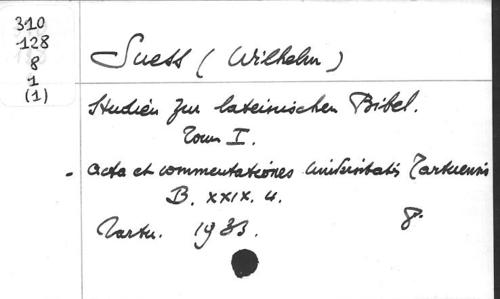 310
128
8
1
(1)
Suess (Wilhelm)
Studien zur lateinischen Bibel.
Tom I.
- Acta et commentationes Universitatis Tartuensis
B. XXIX. 4.
Tartu. 1933. 8°.